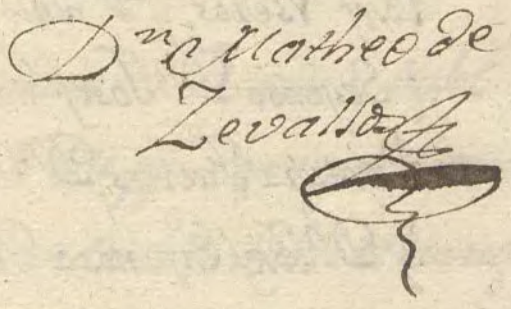 Dn Matheo de
Zevallos